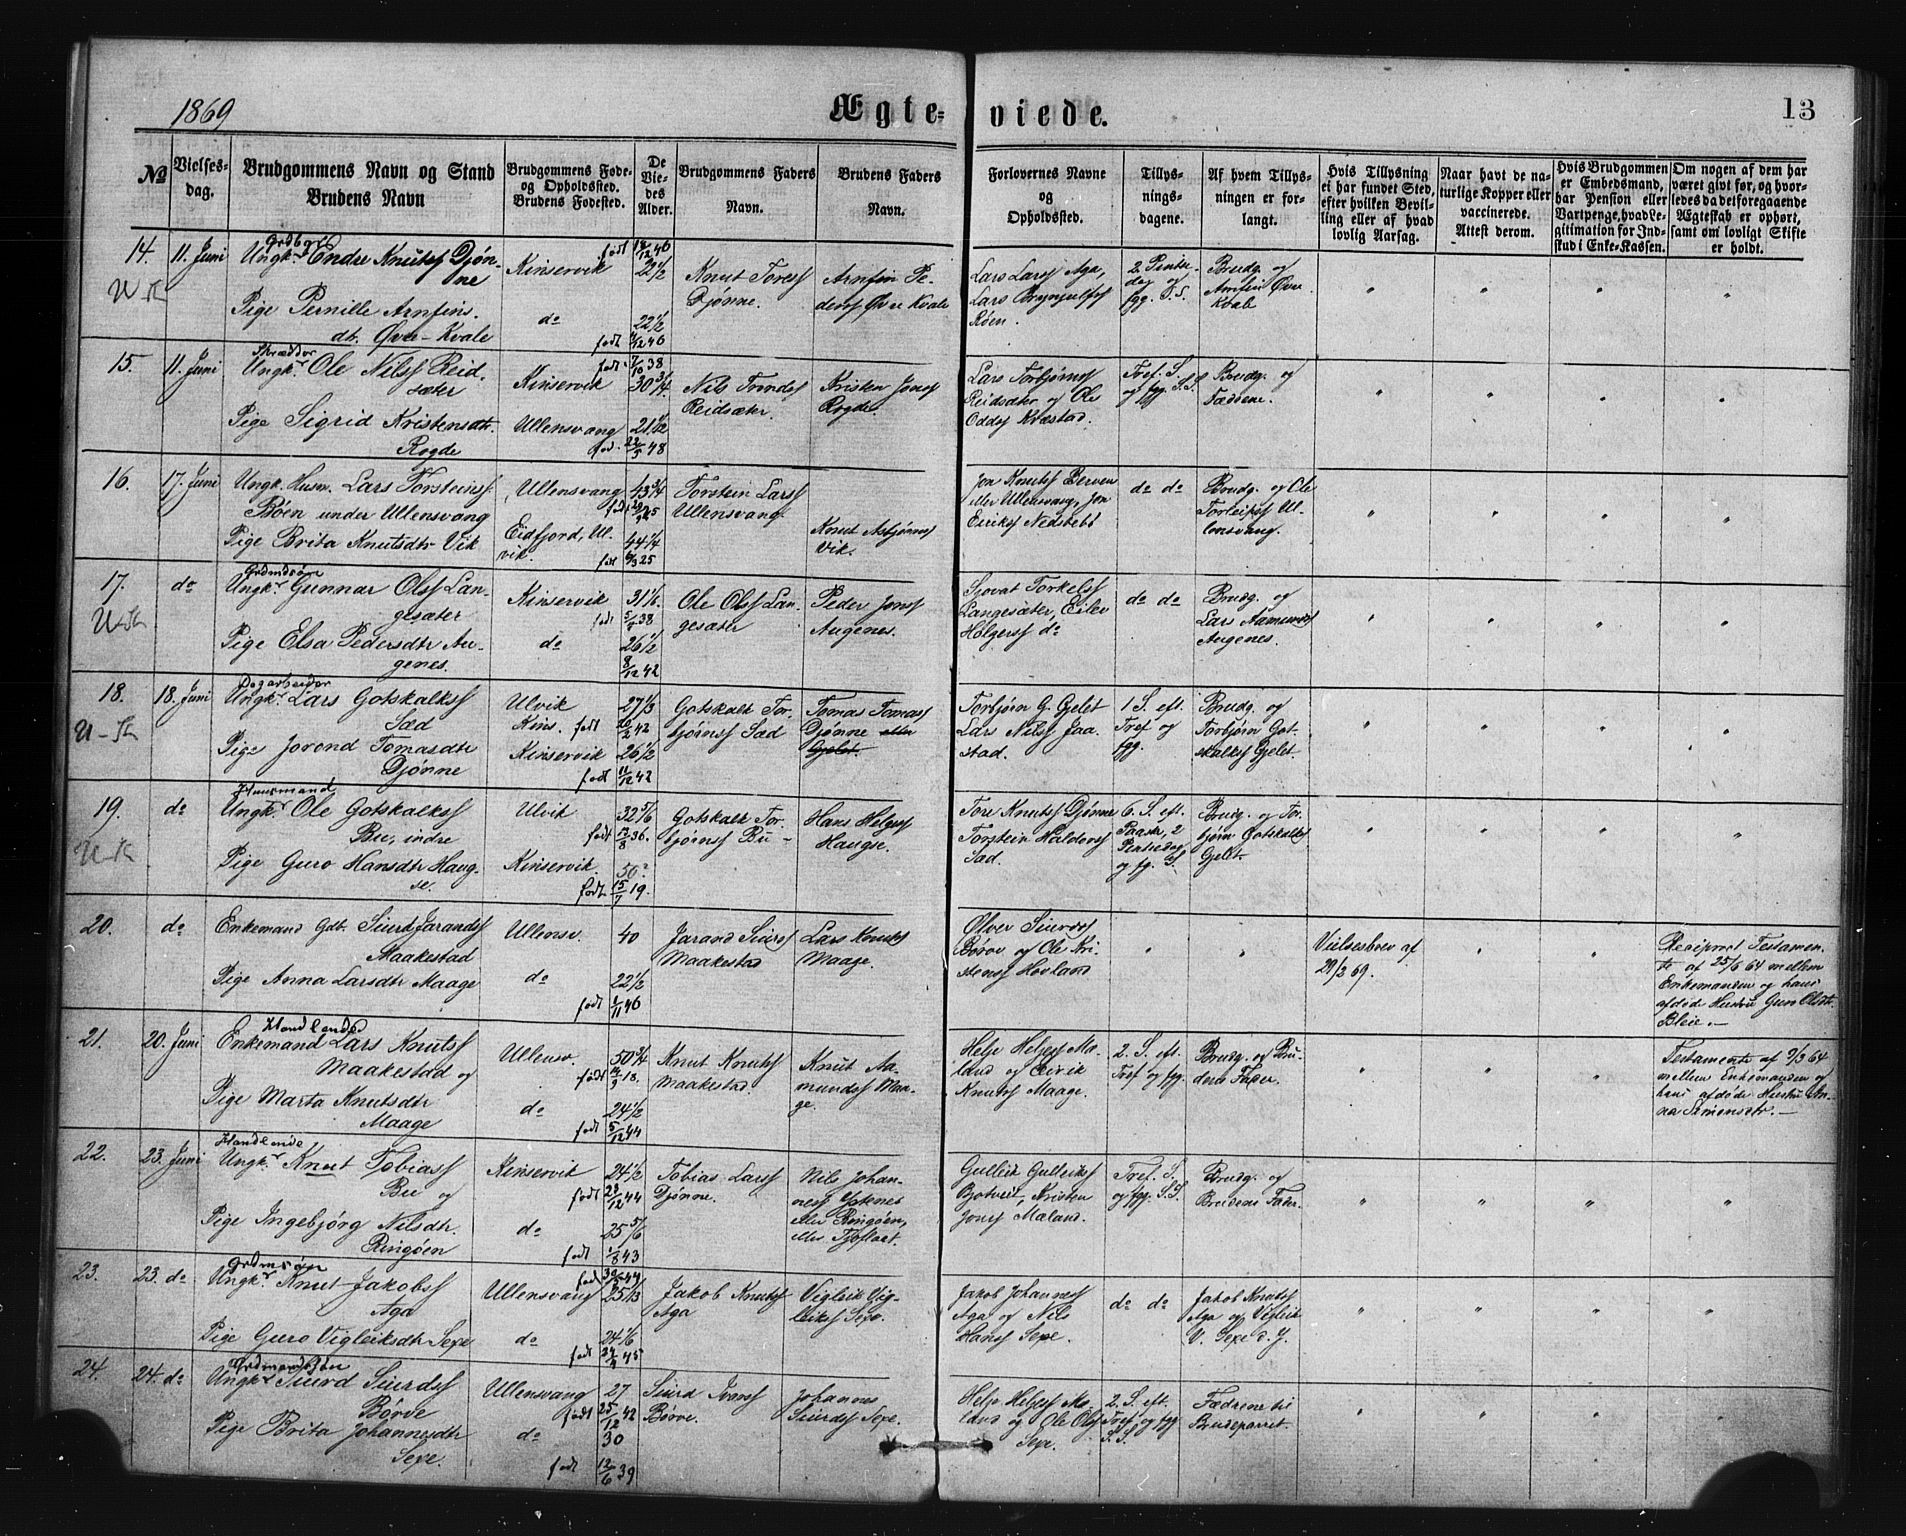 1869
Ægte=
viede.
13
№
Vielses-
dag.
Brudgommens Navn og Stand
Brudens Navn
Brudgommens Føde-
og Opholdssted.
Brudens Fødested.
De
Vie-
des
Alder.
Brudgommens Faders
Navn.
Brudens Faders
Navn.
Forlovernes Navne
og
Opholdssted.
Tillys-
nings-
dagene.
Af hvem Tillys-
ningen er for-
langt.
Hvis Tillysning
ei har fundet Sted,
efter hvilken Bevil-
ling eller af hvad
lovlig Aarsag.
Naar havt de na-
turlige Kopper eller
vaccinerede.
Attest derom.
Hvis Brudgommen
er Embedsmand,
har Pension eller
Vartpenge, hvad Le-
gitimation for Ind-
skud i Enke-Kassen.
Om nogen af dem har
været givt før, og hvor-
ledes da det foregaaende
Ægteskab er ophørt,
samt om lovligt Skifte
er holdt.
14.
11. Juni
Ungkr Endre Knuts Djøn-
ne
Pige Pernille Arnfins-
dt. Øvre-Kvale
Kinservik
do
født 18/12 46
22 1/2
22 1/2
født
12 46
Knut Tores
Djønne.
Arnfin Pe-
ders Øvre Kvale
Lars Lars Aga,
Lars Brynjulfs
Røen.
2. Pintse-
dag og
fgg. S.S.
Brudg. og
Arnfin Øvre
Kvale
" " " "
15.
11. Juni
Skrædder
Ungkr Ole Nils Reid-
sæter
Pige Sigrid Kristensdt.
Rogde
Kinservik
Ullensvang
født 7/10 38
30 3/4
21 1/2
fød. 22/5 48
Nils Tronds
Reidsæter.
Kristen Jons
Rogde.
Lars Torbjørns
Reidsæter og Ole
Odds Kvæstad.
Tref. S.
og fgg. S.S.
Brudg. og
Fædrene.
" " " "
16.
17. Juni
Ungk. Husm. Lars Torsteins
Røen under Ullensvang
Pige Brita Knutsdtr Vik
Ullensvang
Eidfjord, Ul-
vik.
43 3/4
født
44 1/4
født 6/3 25
Torstein Lars
Ullensvang
Knut Asbjørns
Vik.
Jon Knuts Berven
eller Ullensvang, Jon
Eiriks Nedstebø
do do
Brudg. og Ole
Torleifs Ul-
lensvang.
" " " "
17.
do
Ungkr Gunnar Ols Lan-
gesæter
Pige Elsa Pedersdtr Au-
genes.
Kinservik
do
31 1/6
født 5/5 38
26 1/2
8/12 42
Ole Ols Lan-
gesæter
Peder Jons
Augenes.
Sjovat Torkels
Langesæter, Eilev
Holgers do
do do
Brudg. og
Lars Aamunds
Augenes.
" " " "
18.
18. Juni
Dagarbeider
Ungkr Lars Gotskalks
Sæd
Pige Jorond Tomasdtr
Djønne
Ulvik
Kins.
Kinservik
27 1/3
født 20/2 42
26 1/2
født 11/12 42
Gotskalk Tor-
bjørns Sæd
Tomas Tomas
Djønne eller
Gjelet.
Torbjørn G. Gjelet
Lars Nils Jaa-
stad.
1 S. eft.
Tref og
fgg.
Brudg. og
Torbjørn Got-
skalks Gjelet.
" " " "
19.
do
Huusmand
Ungkr. Ole Gotskalks
Bu, indre
Pige Guro Hansdtr Haug-
se.
Ulvik
Kinservik.
32 5/6
født 13/8 36.
50
født 15/7 19.
Gotskalk Tor-
bjørns Bu -
Hans Helges
Haugse.
Tore Knuts Djønne
Torstein Haldors
Sæd.
6. S. eft.
Paaske, 2
Pintsedag
og fg. S.
Brudg. og Tor-
bjørn Gotskalks
Gjelet.
" " " "
20.
do
Enkemand Gdb. Siurd Jarands
Maakestad
Pige Anna Larsdtr Maage
Ullensv.
do
40
22 1/2
født 1/11 46
Jarand Siurds
Maakestad
Lars Knuts
Maage.
Ølver Siurds
Børve og Ole Kri-
stens Hovland
" "
Vielsesbrev af
29/3 69.
" "
Reciproct Testamen-
te af 25/6 64 mellem
Enkemanden og hans
afdøde Hustru Guro Olsdtr.
Bleie. —
21.
20. Juni
Handlende
Enkemand Lars Knuts
Maakestad og
Pige Marta Knutsdtr
Maage
Ullensv.
do
50 3/4
født 18.
24 1/2
født 5/12 44
Knut Knuts
Maakestad
Knut Aa-
munds Maa-
ge.
Helje Helges Ma-
land og Eirik
Knuts Maage.
2. S. eft.
Tref og fgg.
Brudg. og Bru-
dens Fader.
" " "
Testamente af 9/3 64
mellem Enkemanden og
hans afdøde Hustru An-
na Simonsdtr. —
22.
23. Juni
Handlende
Ungkr Knut Tobias
Bu og
Pige Ingebjørg Nilsdtr.
Ringøen
Kinservik
do
24 1/2
født 23/12 44
25 5/6
født 1/8 43
Tobias Lars
Djønne.
Nils Johan-
nes
eller Ringøen,
eller Tjoflaat.
Gulleik Gulleiks
Bjotveit, Kristen
Jons Maland.
Tref. S.
og fgg. S.S.
Brudg. og
Brudens Fader.
" " " "
23.
23. do
Ungkr Knut Jakobs
Aga
Pige Guro Vigleiksdtr Sexe
Ullensvang
do
født 44
25 1/3
24 1/6
født 24/4 45
Jakob Knuts
Aga
Vigleik Vig-
leiks Sexe.
Jakob Johannes
Aga og Nils
Hans Sexe.
do do
Jakob Knuts
Aga og Vigleik
V. Sexe d. Y.
" " " "
24.
24. do
Ungkr Siurd Siurds
Børve
Pige Brita Johannesdtr
Sexe.
Ullensvang
do
27
født 25/12 42
30
født 12/6 39
Siurd Ivars
Børve.
Johannes
Siurds Sexe.
Helje Helges Ma-
land og Ole Ols
Sexe.
2. S. eft.
Tref og fgg
S.S.
Fædrene til
Brudeparret.
" " " "